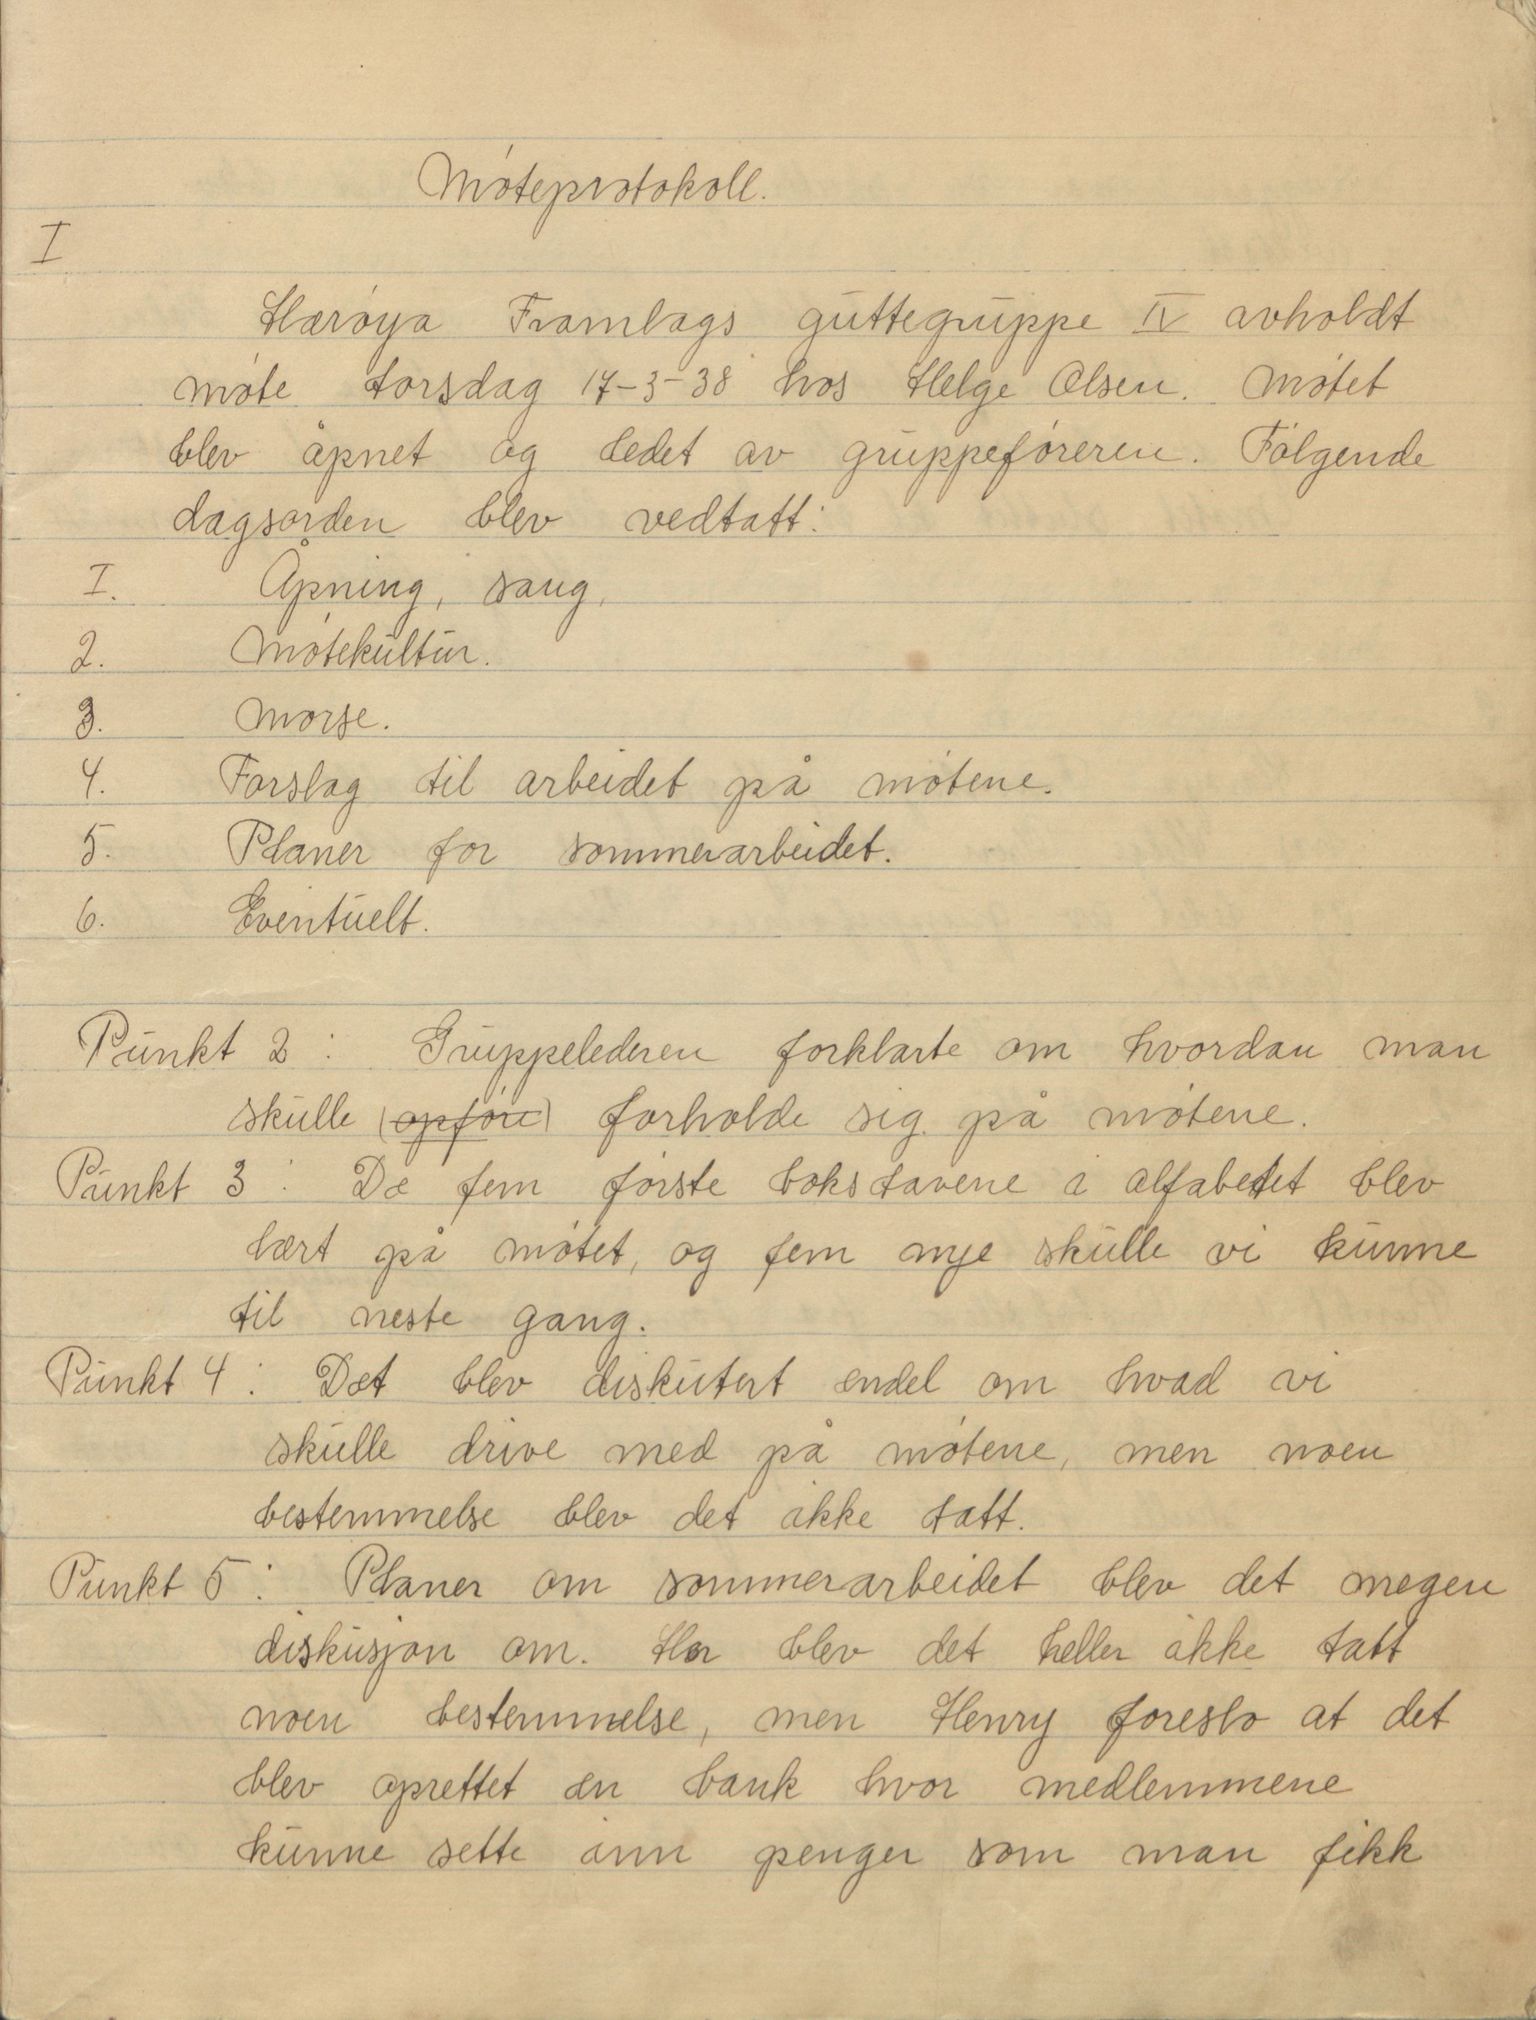 Møteprotokoll.
I
Herøya Framlags guttegruppe IV avholdt
møte torsdag 17-3-38 hos Helge Olsen. Møtet
blev åpnet og ledet av gruppeføreren. Følgende
dagsorden blev vedtatt:
I. Åpning, sang.
2. Møtekultur.
3. Morse.
4. Forslag til arbeidet på møtene.
5. Planer for sommerarbeidet.
6. Eventuelt.
Punkt 2 : Gruppelederen forklarte om hvordan man
skulle (opføre) forholde sig på møtene.
Punkt 3 : De fem første bokstavene i alfabetet blev
lært på møtet, og fem nye skulle vi kunne
til neste gang.
Punkt 4 : Det blev diskutert endel om hvad vi
skulle drive med på møtene, men noen
bestemmelse blev det ikke tatt.
Punkt 5 : Planer om sommerarbeidet blev det megen
diskusjon om. Her blev det heller ikke tatt
noen bestemmelse, men Henry foreslo at det
blev oprettet en bank hvor medlemmene
kunne sette inn penger som man fikk